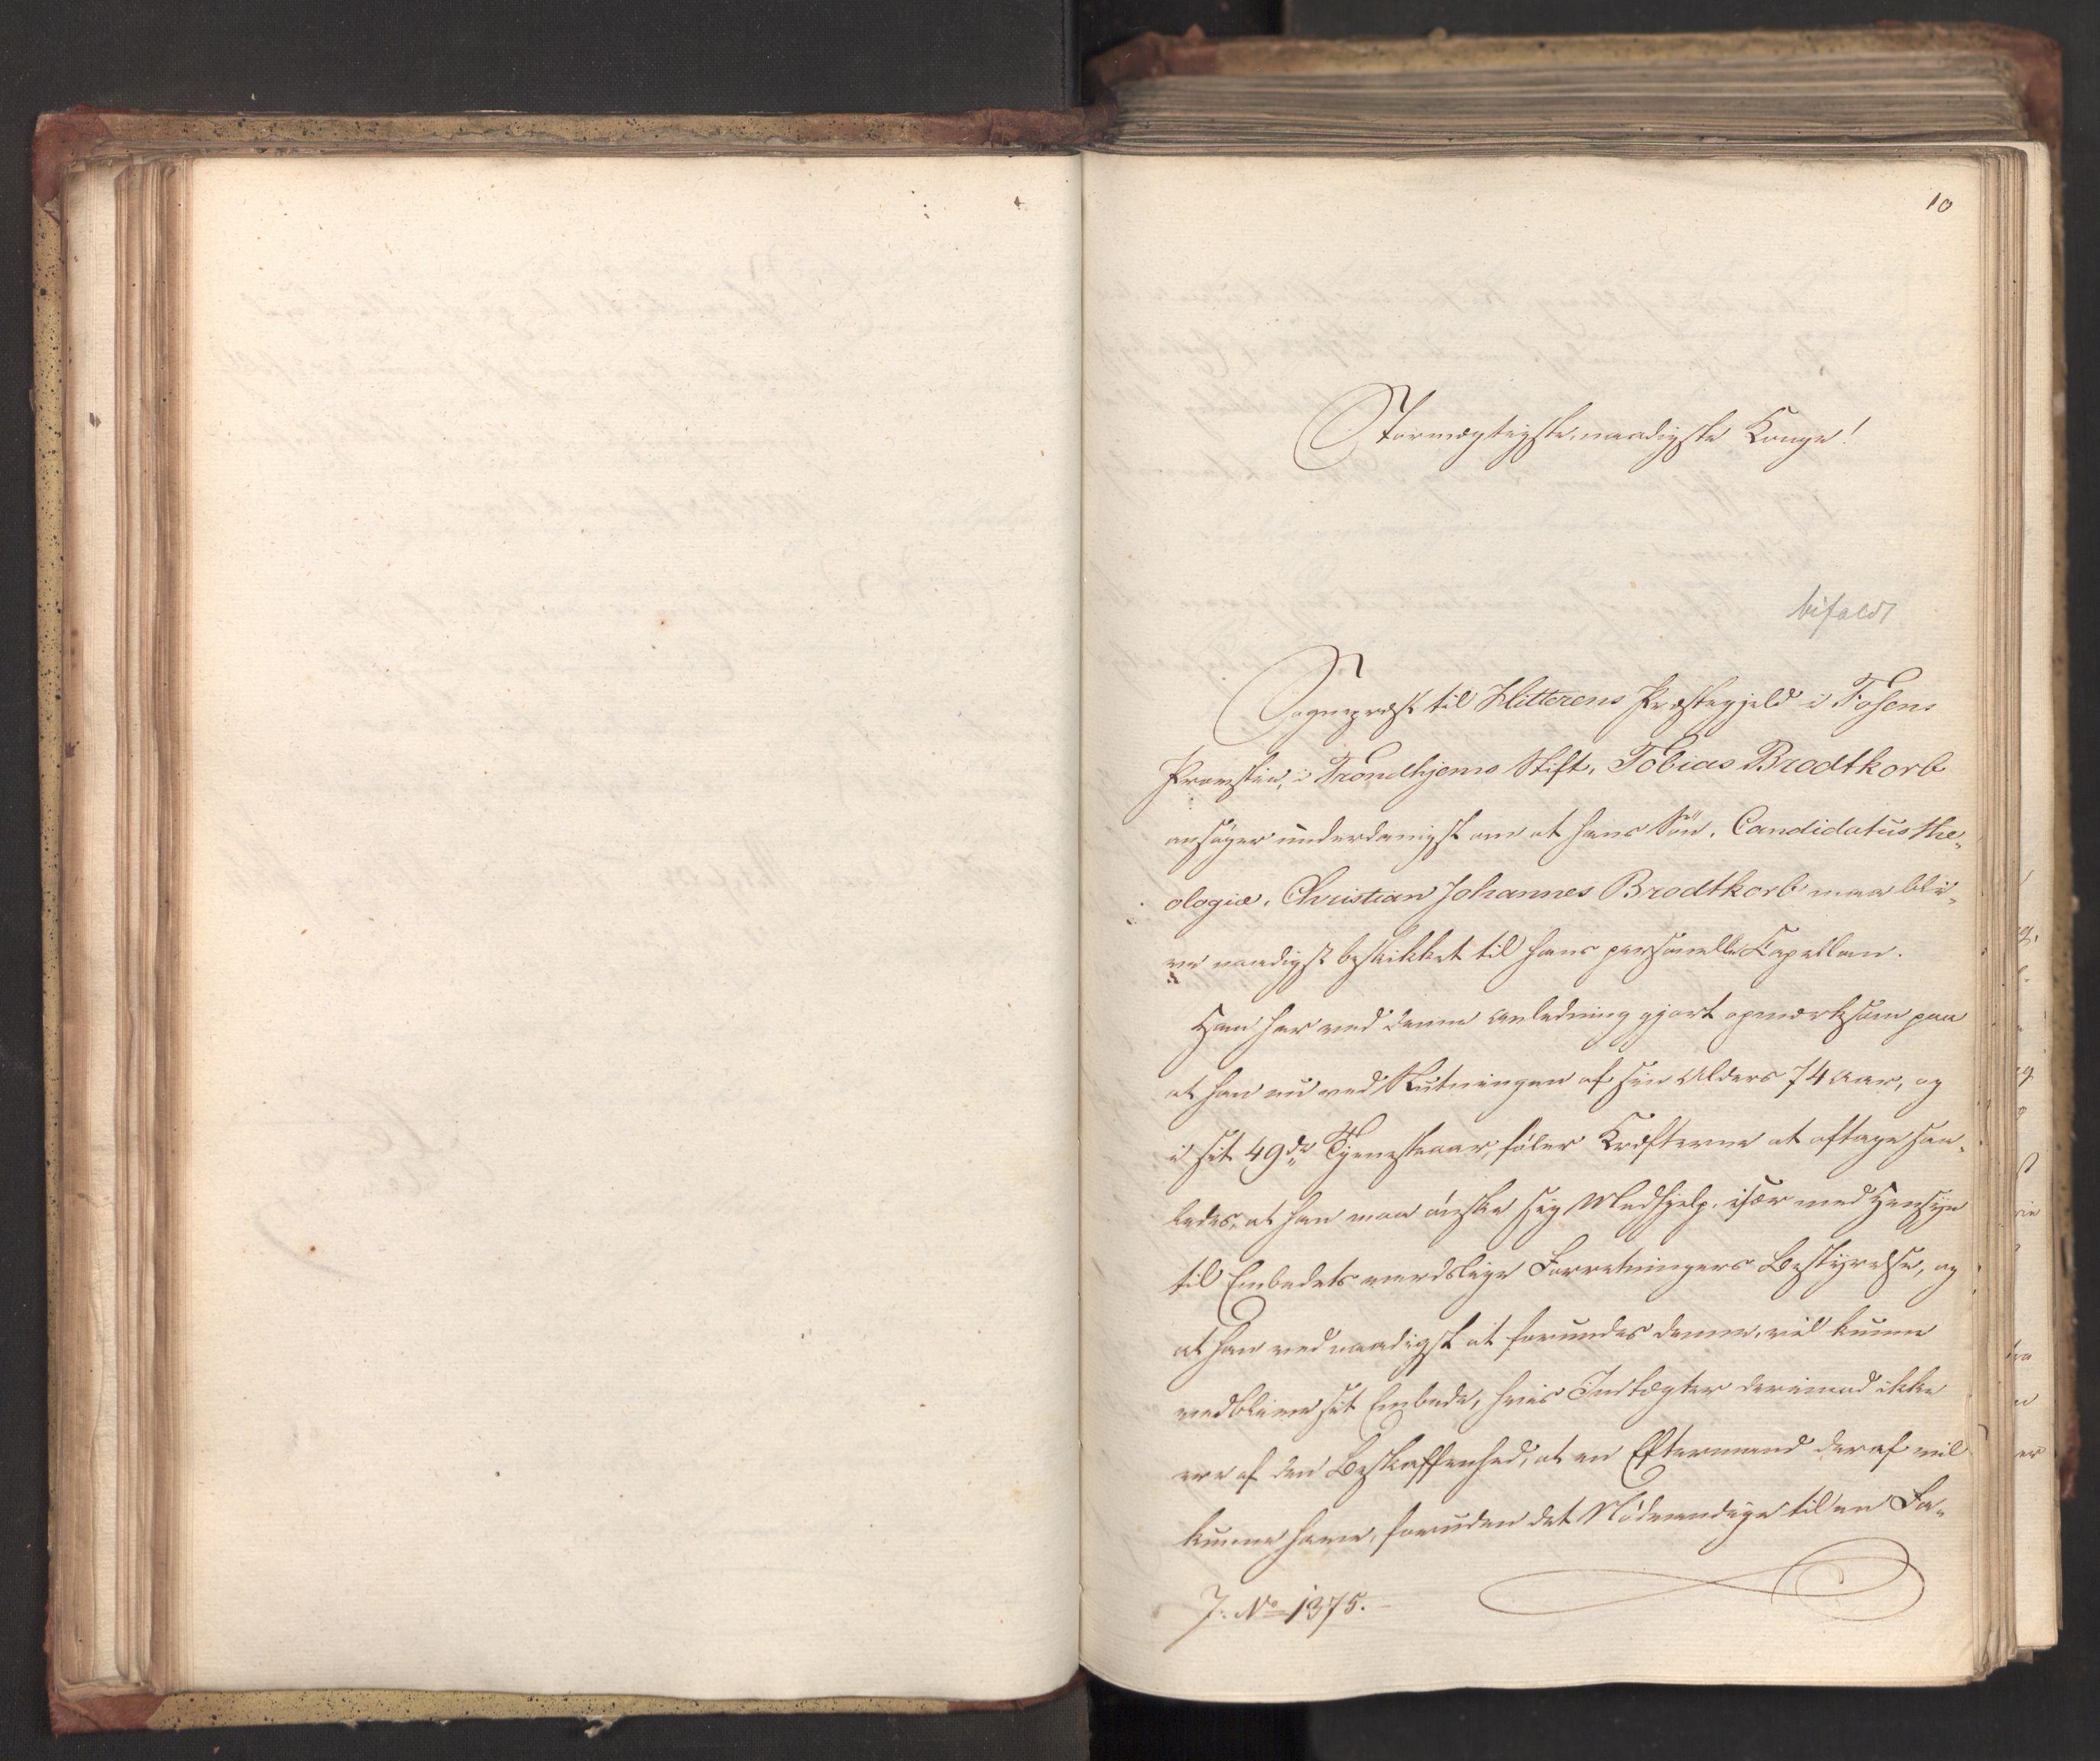 10
Stormægtigste, naadigste Konge!
bifaldt
Sognepræst til Hitterens Præstegjeld i Fosens
Provstie, i Trondhjems Stift, Tobias Brodtkorb
ansøger underdanigst om at hans Søn, Candidatus the„
ologiæ, Christian Johannes Brodtkorb maa bli„
ve naadigst beskikket til hans personelle Capellan.
Han har ved denne Anledning gjort opmærksom paa
at han nu ved Slutningen af sin Alders 74 Aar, og
i sit 49de Tjenesteaar, føler Kræfterne at aftage saa„
ledes, at han maa ønske sig Medhjelp, især med Hensyn
til Embedets verdslige Forretningers Bestyrelse, og
at han ved naadigst at forundes denne, vil kunne
vedblive sit Embede, hvis Indtægter derimod ikke
ere af den Beskaffenhed, at en Eftermand deraf vil
kunne have, foruden det Nødvendige til en Fa„
J: No 1375.